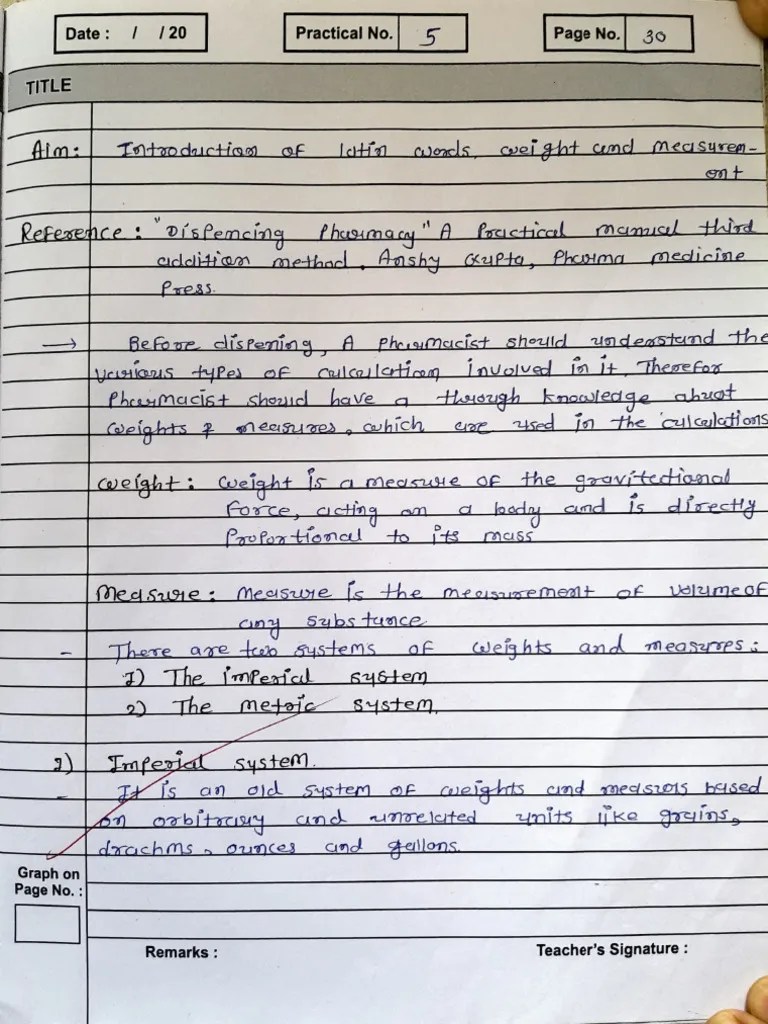 Date : / / 20
Practical No. 5
Page No. 30
TITLE
Aim: Introduction of latin words, weight and measurem-
ent
Reference : "Dispencing Pharmacy" A Practical manual third
addition method, Anshy Gupta, Pharma medicine
Press.
→ Before dispening, A pharmacist should understand the
various types of calculation involved in it. Therefor
Pharmacist should have a through knowledge about
weights & measures, which are used in the calculations
weight : weight is a measure of the gravitectional
Force, acting on a body and is directly
Proportional to its mass
Measure : Measure is the measurement of volume of
any substance
- There are two systems of weights and measures :
1) The imperial system
2) The metric system.
1) Imperial system.
- It is an old system of weights and measors based
on orbitrary and unrelated units like grains,
drachms, ounces and gallons.
Graph on
Page No. :
Remarks :
Teacher's Signature :